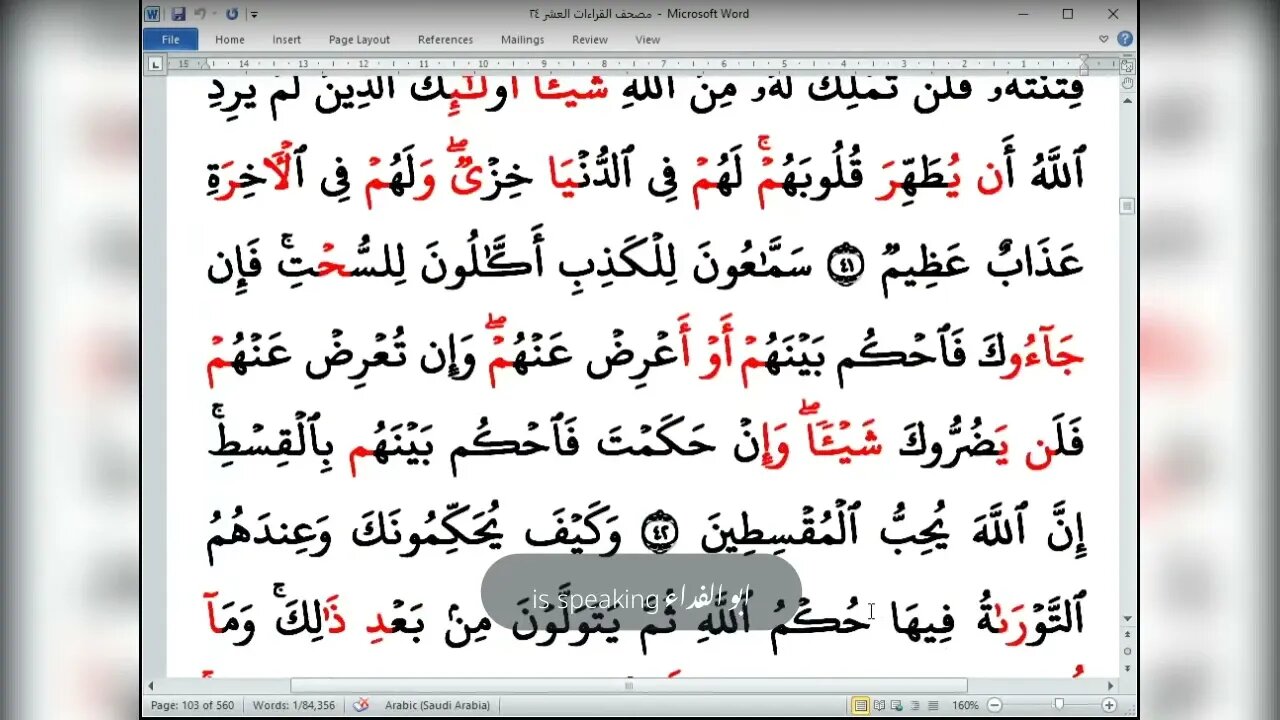 مصحف القراءات العشر ٢٤ - Microsoft Word
File Home Insert Page Layout References Mailings Review View
15 14 13 12 11 10 9 8 7 6 5 4 3 2 1
فِتْنَتَهُۥ فَلَن تَمْلِكَ لَهُۥ مِنَ ٱللَّهِ شَيْـًٔا أُو۟لَـٰٓئِكَ ٱلَّذِينَ لَمْ يُرِدِ
ٱللَّهُ أَن يُطَهِّرَ قُلُوبَهُمْ ۚ لَهُمْ فِى ٱلدُّنْيَا خِزْىٌ ۖ وَلَهُمْ فِى ٱلْـَٔاخِرَةِ
عَذَابٌ عَظِيمٌ ٤١ سَمَّـٰعُونَ لِلْكَذِبِ أَكَّـٰلُونَ لِلسُّحْتِ ۚ فَإِن
جَآءُوكَ فَٱحْكُم بَيْنَهُمْ أَوْ أَعْرِضْ عَنْهُمْ ۖ وَإِن تُعْرِضْ عَنْهُمْ
فَلَن يَضُرُّوكَ شَيْـًٔا ۖ وَإِنْ حَكَمْتَ فَٱحْكُم بَيْنَهُم بِٱلْقِسْطِ ۚ
إِنَّ ٱللَّهَ يُحِبُّ ٱلْمُقْسِطِينَ ٤٢ وَكَيْفَ يُحَكِّمُونَكَ وَعِندَهُمُ
ابو الفداء is speaking
ٱلتَّوْرَىٰةُ فِيهَا حُكْمُ ٱللَّهِ ثُمَّ يَتَوَلَّوْنَ مِنۢ بَعْدِ ذَٰلِكَ ۚ وَمَآ
Page: 103 of 560 Words: 1/84,356 Arabic (Saudi Arabia) 160%